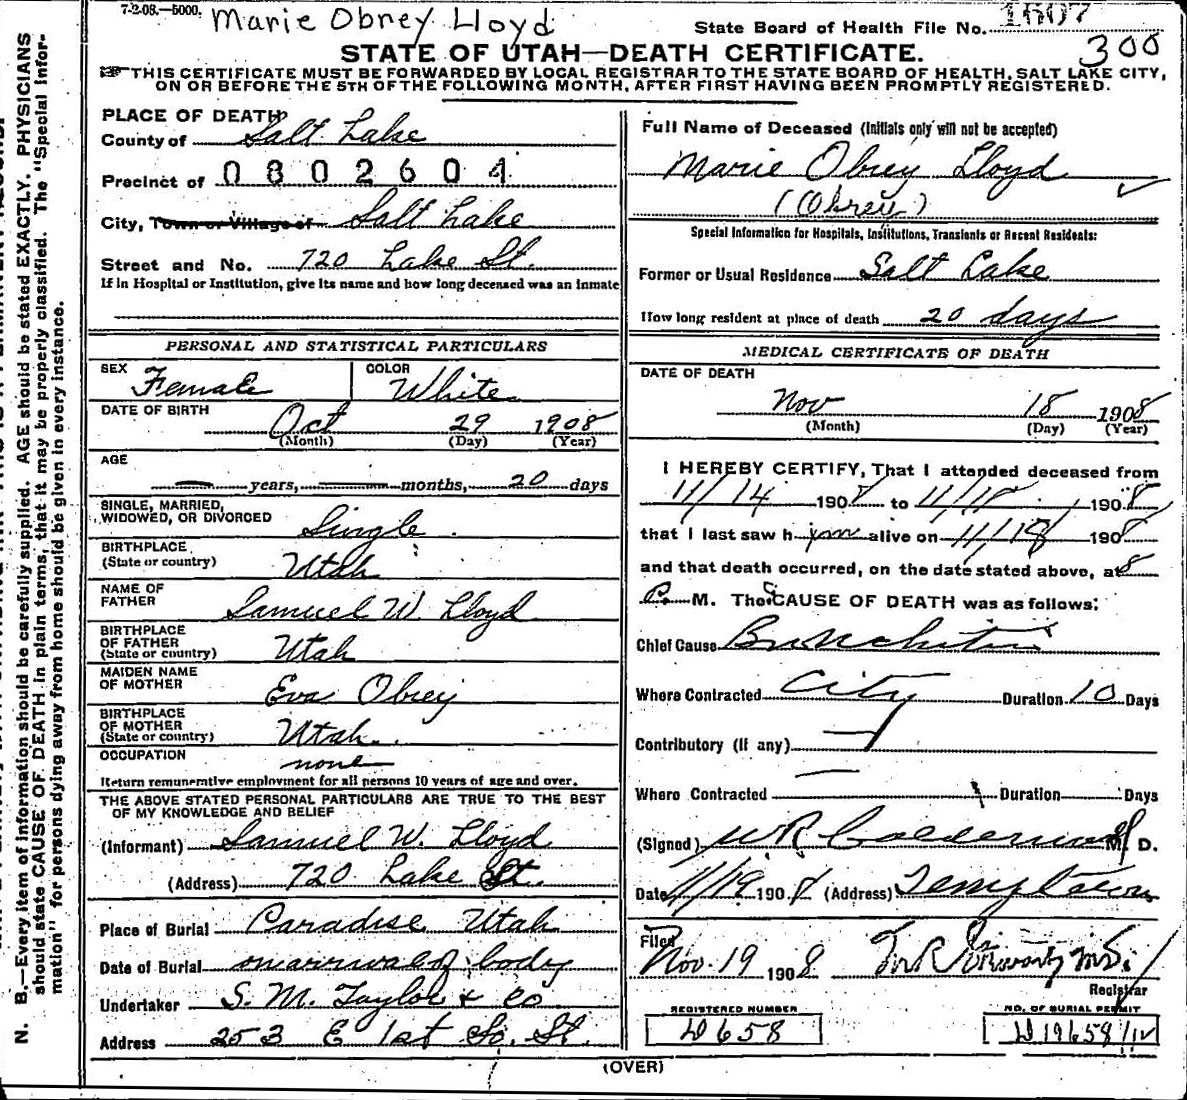 7-2-08.—5000.
Marie Obrey Lloyd
State Board of Health File No. 1607
300
STATE OF UTAH—DEATH CERTIFICATE.
THIS CERTIFICATE MUST BE FORWARDED BY LOCAL REGISTRAR TO THE STATE BOARD OF HEALTH, SALT LAKE CITY,
ON OR BEFORE THE 5TH OF THE FOLLOWING MONTH, AFTER FIRST HAVING BEEN PROMPTLY REGISTERED.
PLACE OF DEATH
County of Salt Lake
Precinct of 0802604
City, Town or Village of Salt Lake
Street and No. 720 Lake St.
If in Hospital or Institution, give its name and how long deceased was an inmate
PERSONAL AND STATISTICAL PARTICULARS
SEX Female
COLOR White
DATE OF BIRTH Oct 29 1908
(Month) (Day) (Year)
AGE
— years, — months, 20 days
SINGLE, MARRIED,
WIDOWED, OR DIVORCED Single
BIRTHPLACE
(State or country) Utah
NAME OF
FATHER Samuel W. Lloyd
BIRTHPLACE
OF FATHER
(State or country) Utah
MAIDEN NAME
OF MOTHER Eva Obrey
BIRTHPLACE
OF MOTHER
(State or country) Utah
OCCUPATION none
Return remunerative employment for all persons 10 years of age and over.
THE ABOVE STATED PERSONAL PARTICULARS ARE TRUE TO THE BEST
OF MY KNOWLEDGE AND BELIEF
(Informant) Samuel W. Lloyd
(Address) 720 Lake St.
Place of Burial Paradise Utah
Date of Burial on arrival of body
Undertaker S. M. Taylor & Co
Address 253 E 1st So. St.
Full Name of Deceased (Initials only will not be accepted)
Marie Obrey Lloyd
(Obrey)
Special Information for Hospitals, Institutions, Transients or Recent Residents:
Former or Usual Residence Salt Lake
How long resident at place of death 20 days
MEDICAL CERTIFICATE OF DEATH
DATE OF DEATH
Nov 18 1908
(Month) (Day) (Year)
I HEREBY CERTIFY, That I attended deceased from
11/14 1908 to 11/18, 1908
that I last saw h im alive on 11/18 1908
and that death occurred, on the date stated above, at 8
P. M. The CAUSE OF DEATH was as follows:
Chief Cause Bronchitis
Where Contracted City Duration 10 Days
Contributory (If any) —
Where Contracted — Duration Days
(Signed) W R M. D.
Date 11/19 1908 (Address)
Filed
Nov. 19 1908 M.D.
Registrar
REGISTERED NUMBER
D658
NO. OF BURIAL PERMIT
D19658/12
(OVER)
N. B.—Every item of information should be carefully supplied. AGE should be stated EXACTLY. PHYSICIANS
should state CAUSE OF DEATH in plain terms, that it may be properly classified. The "Special Infor-
mation" for persons dying away from home should be given in every instance.